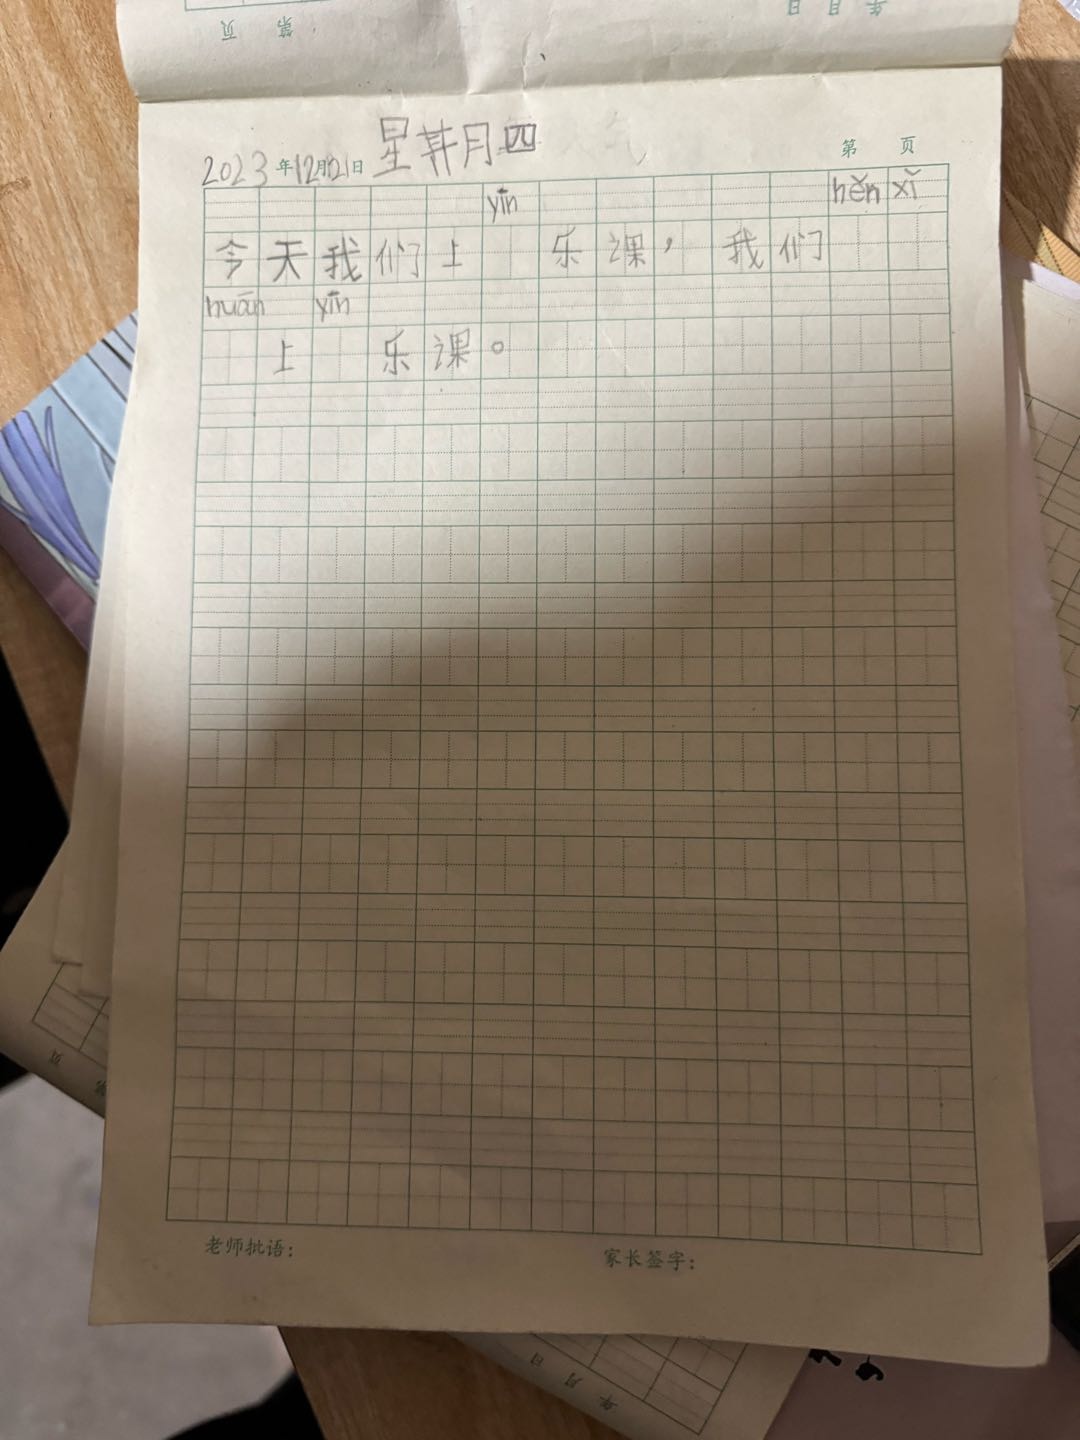 页 第 日 月 年
2023年12月21日 星期四
第 页
yīn hěn xǐ
今天我们上 乐课，我们
huān yīn
上 乐课。
老师批语： 家长签字：
页
年 月 日